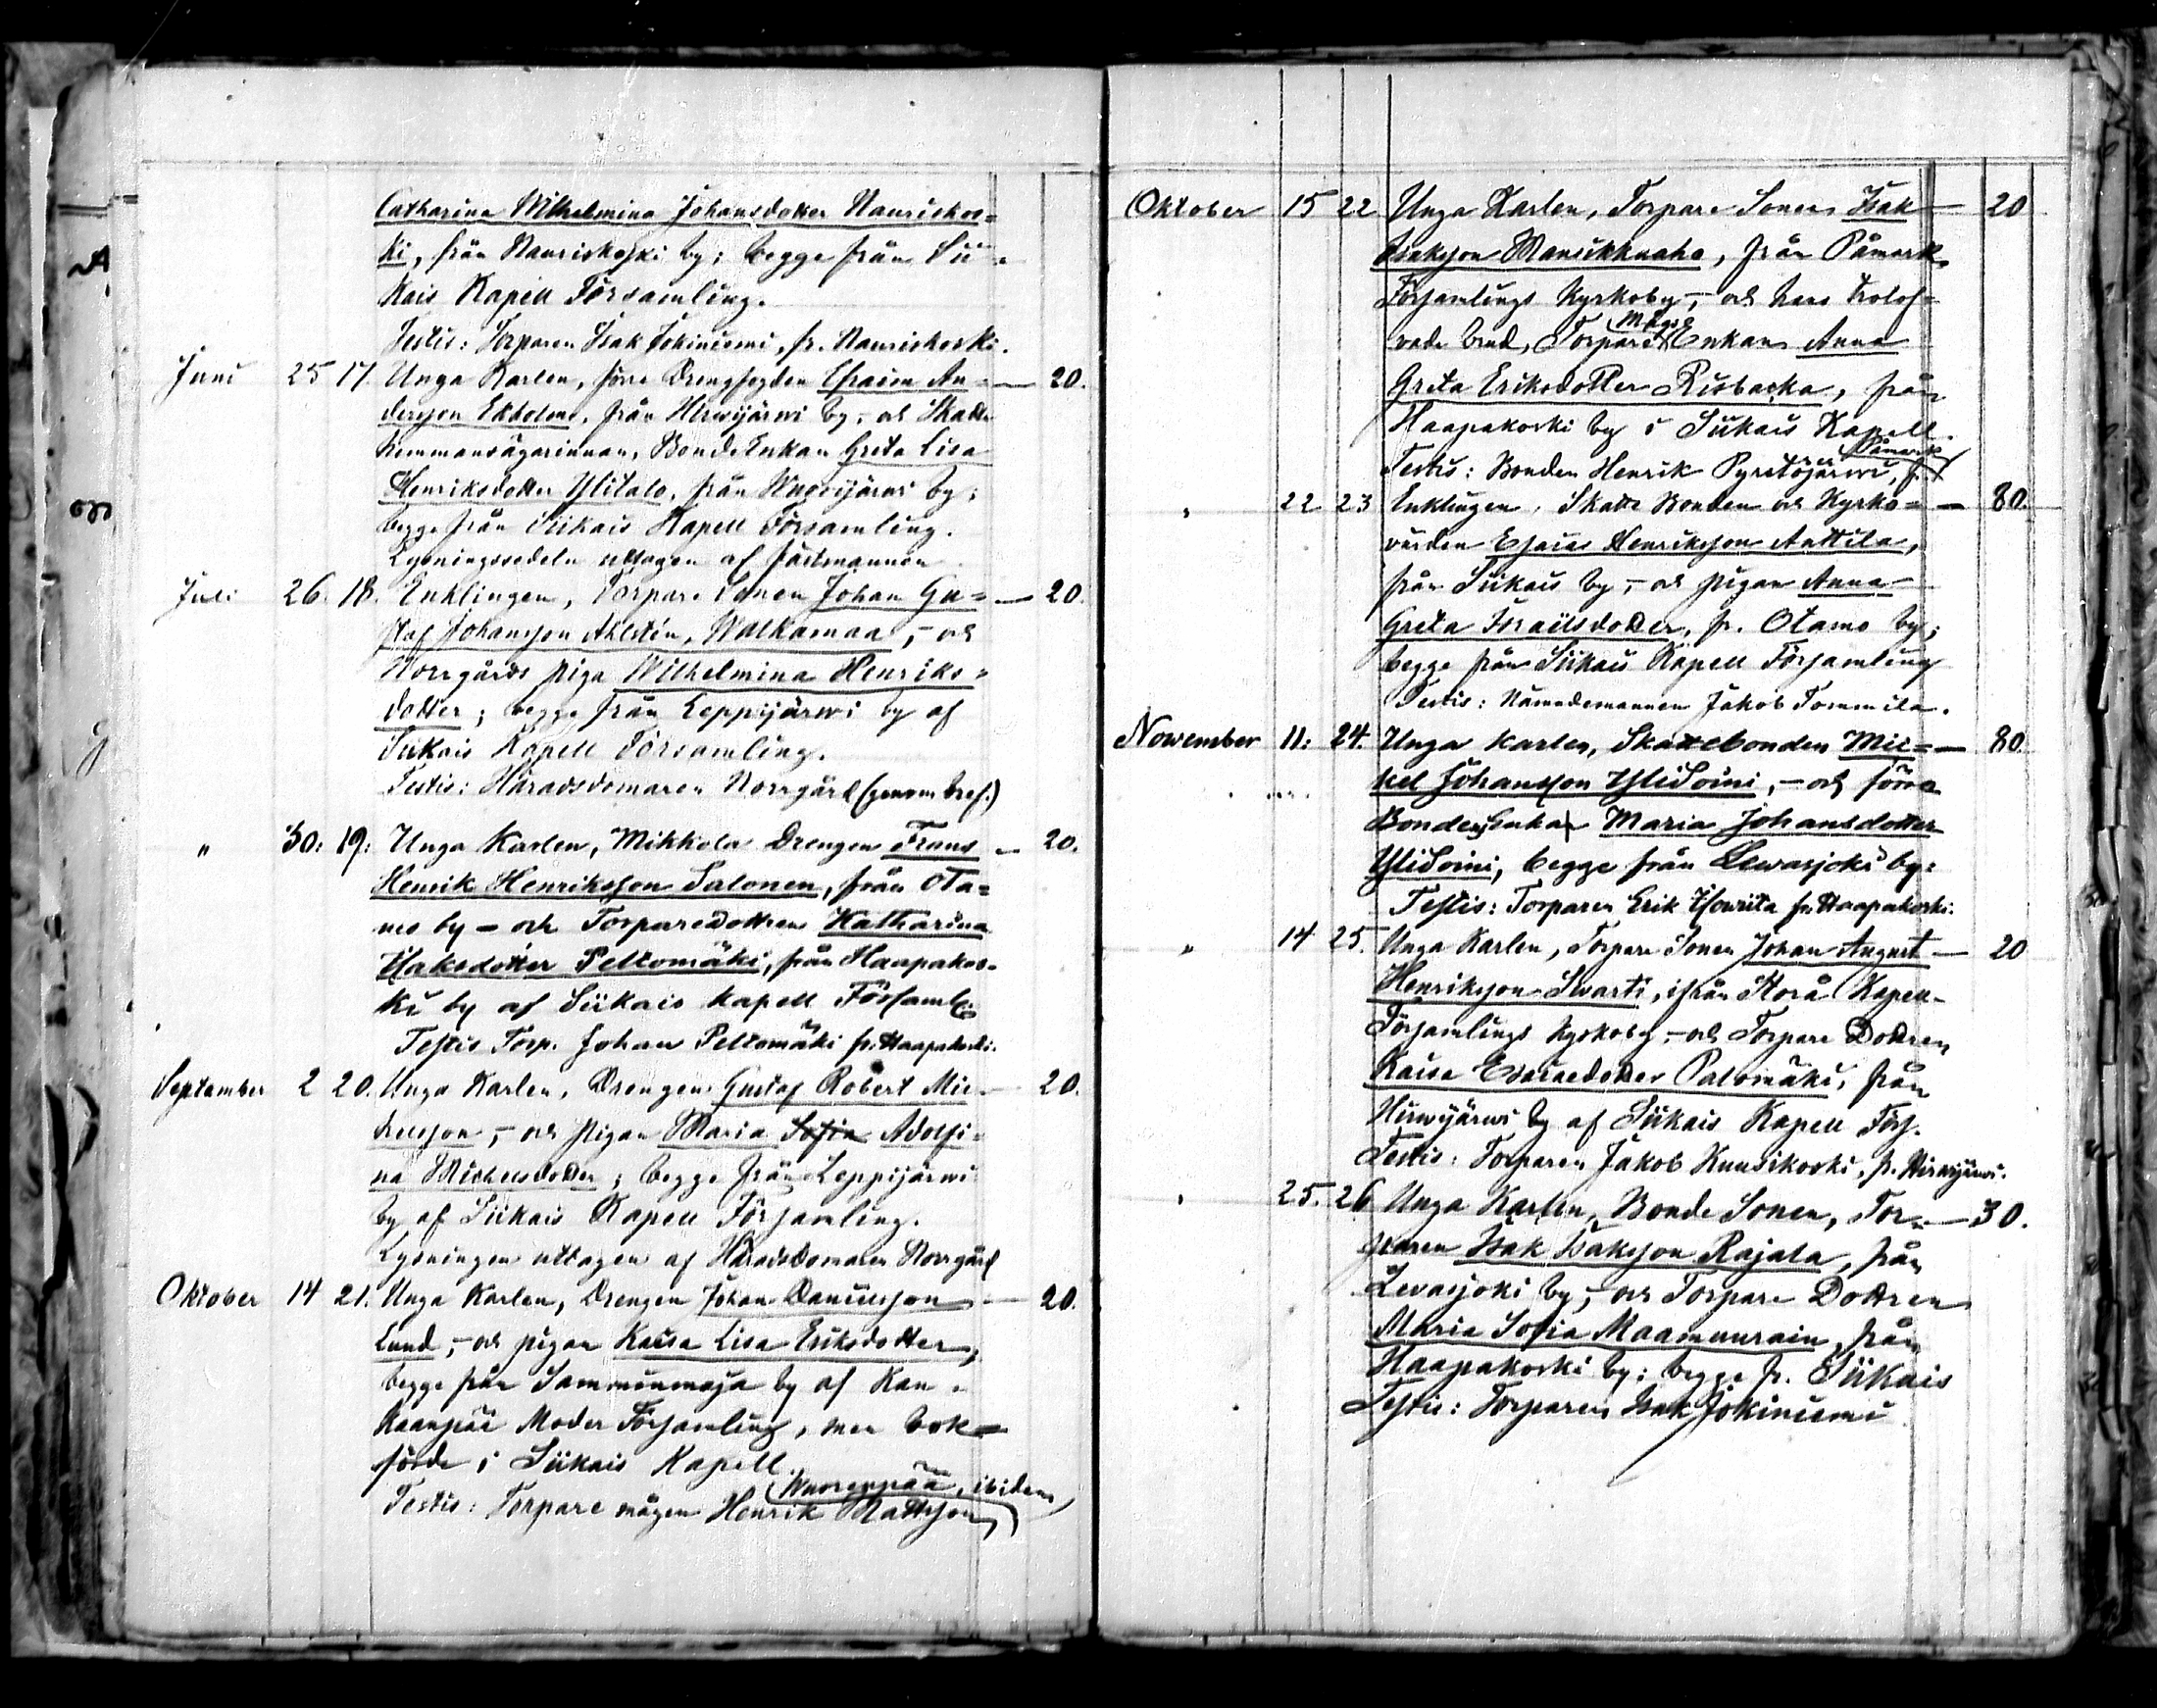 Catharina Wilhelmina Johansdotter Nauriskos=
ki, från Nauriskoski by; begge från Sii=
kais Kapell Församling.
Testis: Torparen Isak Jokiniemi, fr. Nauriskoski.
Juni 25 17. Unga Karlen, förra Drengfogden Efraim An= — 20.
dersson Ekholm, från Hirvijärwi by, och Skatte
hemmansägarinnan, BondeEnkan Greta Lisa
Henriksdotter Ylitalo, från by;
begge från Siikais Kapell Församling.
Lysningssedeln uttagen af fästmannen
Juli 26. 18. Enklingen, Torpare Sonen Johan Gu= — 20.
staf Johansson Ahlstén, Walkamaa, – och
Norrgårds piga Wilhelmina Henriks=
dotter; begge från Leppijärwi by af
Siikais Kapell Församling.
Testis: Häradsdomaren Norrgård (genom bref.)
" 30: 19: Unga Karlen, Mikkola Drengen Frans — 20.
Henrik Henriksson Salonen, från Ota=
mo by – och Torparedottren Katharina
Isaksdotter Peltomäki, från Haapakos=
ki by af Siikais kapell Församl:
Testis Torp. Johan Peltomäki fr. Haapakoski.
September 2 20. Unga Karlen, Drengen Gustaf Robert Mic — 20.
helsson, – och pigan Maria Sofia Adolfi=
na Michelsdotter; begge från Leppijärwi
by af Siikais Kapell Församling.
Lysningen uttagen af Häradsdomaren Norrgård
Oktober 14 21. Unga Karlen, Drengen Johan Danielsson — 20.
Lund, – och pigan Kaisa Lisa Eriksdotter,
begge från Samminmaja by af Kan=
kaanpää Moder Församling, men bok=
förde i Siikais Kapell.
Wuorenpää, ibidem
Testis: Torpare mågen Henrik Mattsson
Oktober 15 22 Unga Karlen, Torpare Sonen Isak — 20
Isaksson Mansikkaaho, från Påmark
Församlings Kyrkoby, – och hans trolof=
Mågs
vade brud, Torpare Enkan Anna
Greta Eriksdotter Risbacka, från
Haapakoski by i Siikais Kapell.
Påmark
Testis: Bonden Henrik Pyretöjärwi, fr.
" 22 23 Enklingen, Skatte Bonden och Kyrko= — 80.
värden Esaias Henriksson Anttila,
från Siikais by, – och pigan Anna
Greta Israelsdotter, fr. Otamo by;
begge från Siikais Kapell Församling
Testis: Nämndemannen Jakob Tommila.
November 11: 24. Unga karlen, Skattebonden Mic= — 80.
hel Johansson YliSoini, – och förra
BondeEnkan Maria Johansdotter
YliSoini, begge från Lewasjoki by:
Testis: Torparen Erik fr. Haapakoski.
" 14 25. Unga Karlen, Torpare Sonen Johan August — 20
Henriksson Swarti, ifrån Storå Kapell
Församlings kyrkoby, – och Torpare Dottren
Kaisa Esaiaedotter Palomäki, från
Hirwijärwi by af Siikais Kapell Förs.
Testis: Torparen Jakob Kuusikoski, fr. Hirwijärwi.
" 25. 26 Unga Karlen, Bonde Sonen, Tor= — 30.
paren Isak Isaksson Rajala, från
Levasjoki by, – och Torpare Dottren
Maria Sofia Maamuurain, från
Haapakoski by; begge fr. Siikais
Testis: Torparen Isak Jokiniemi